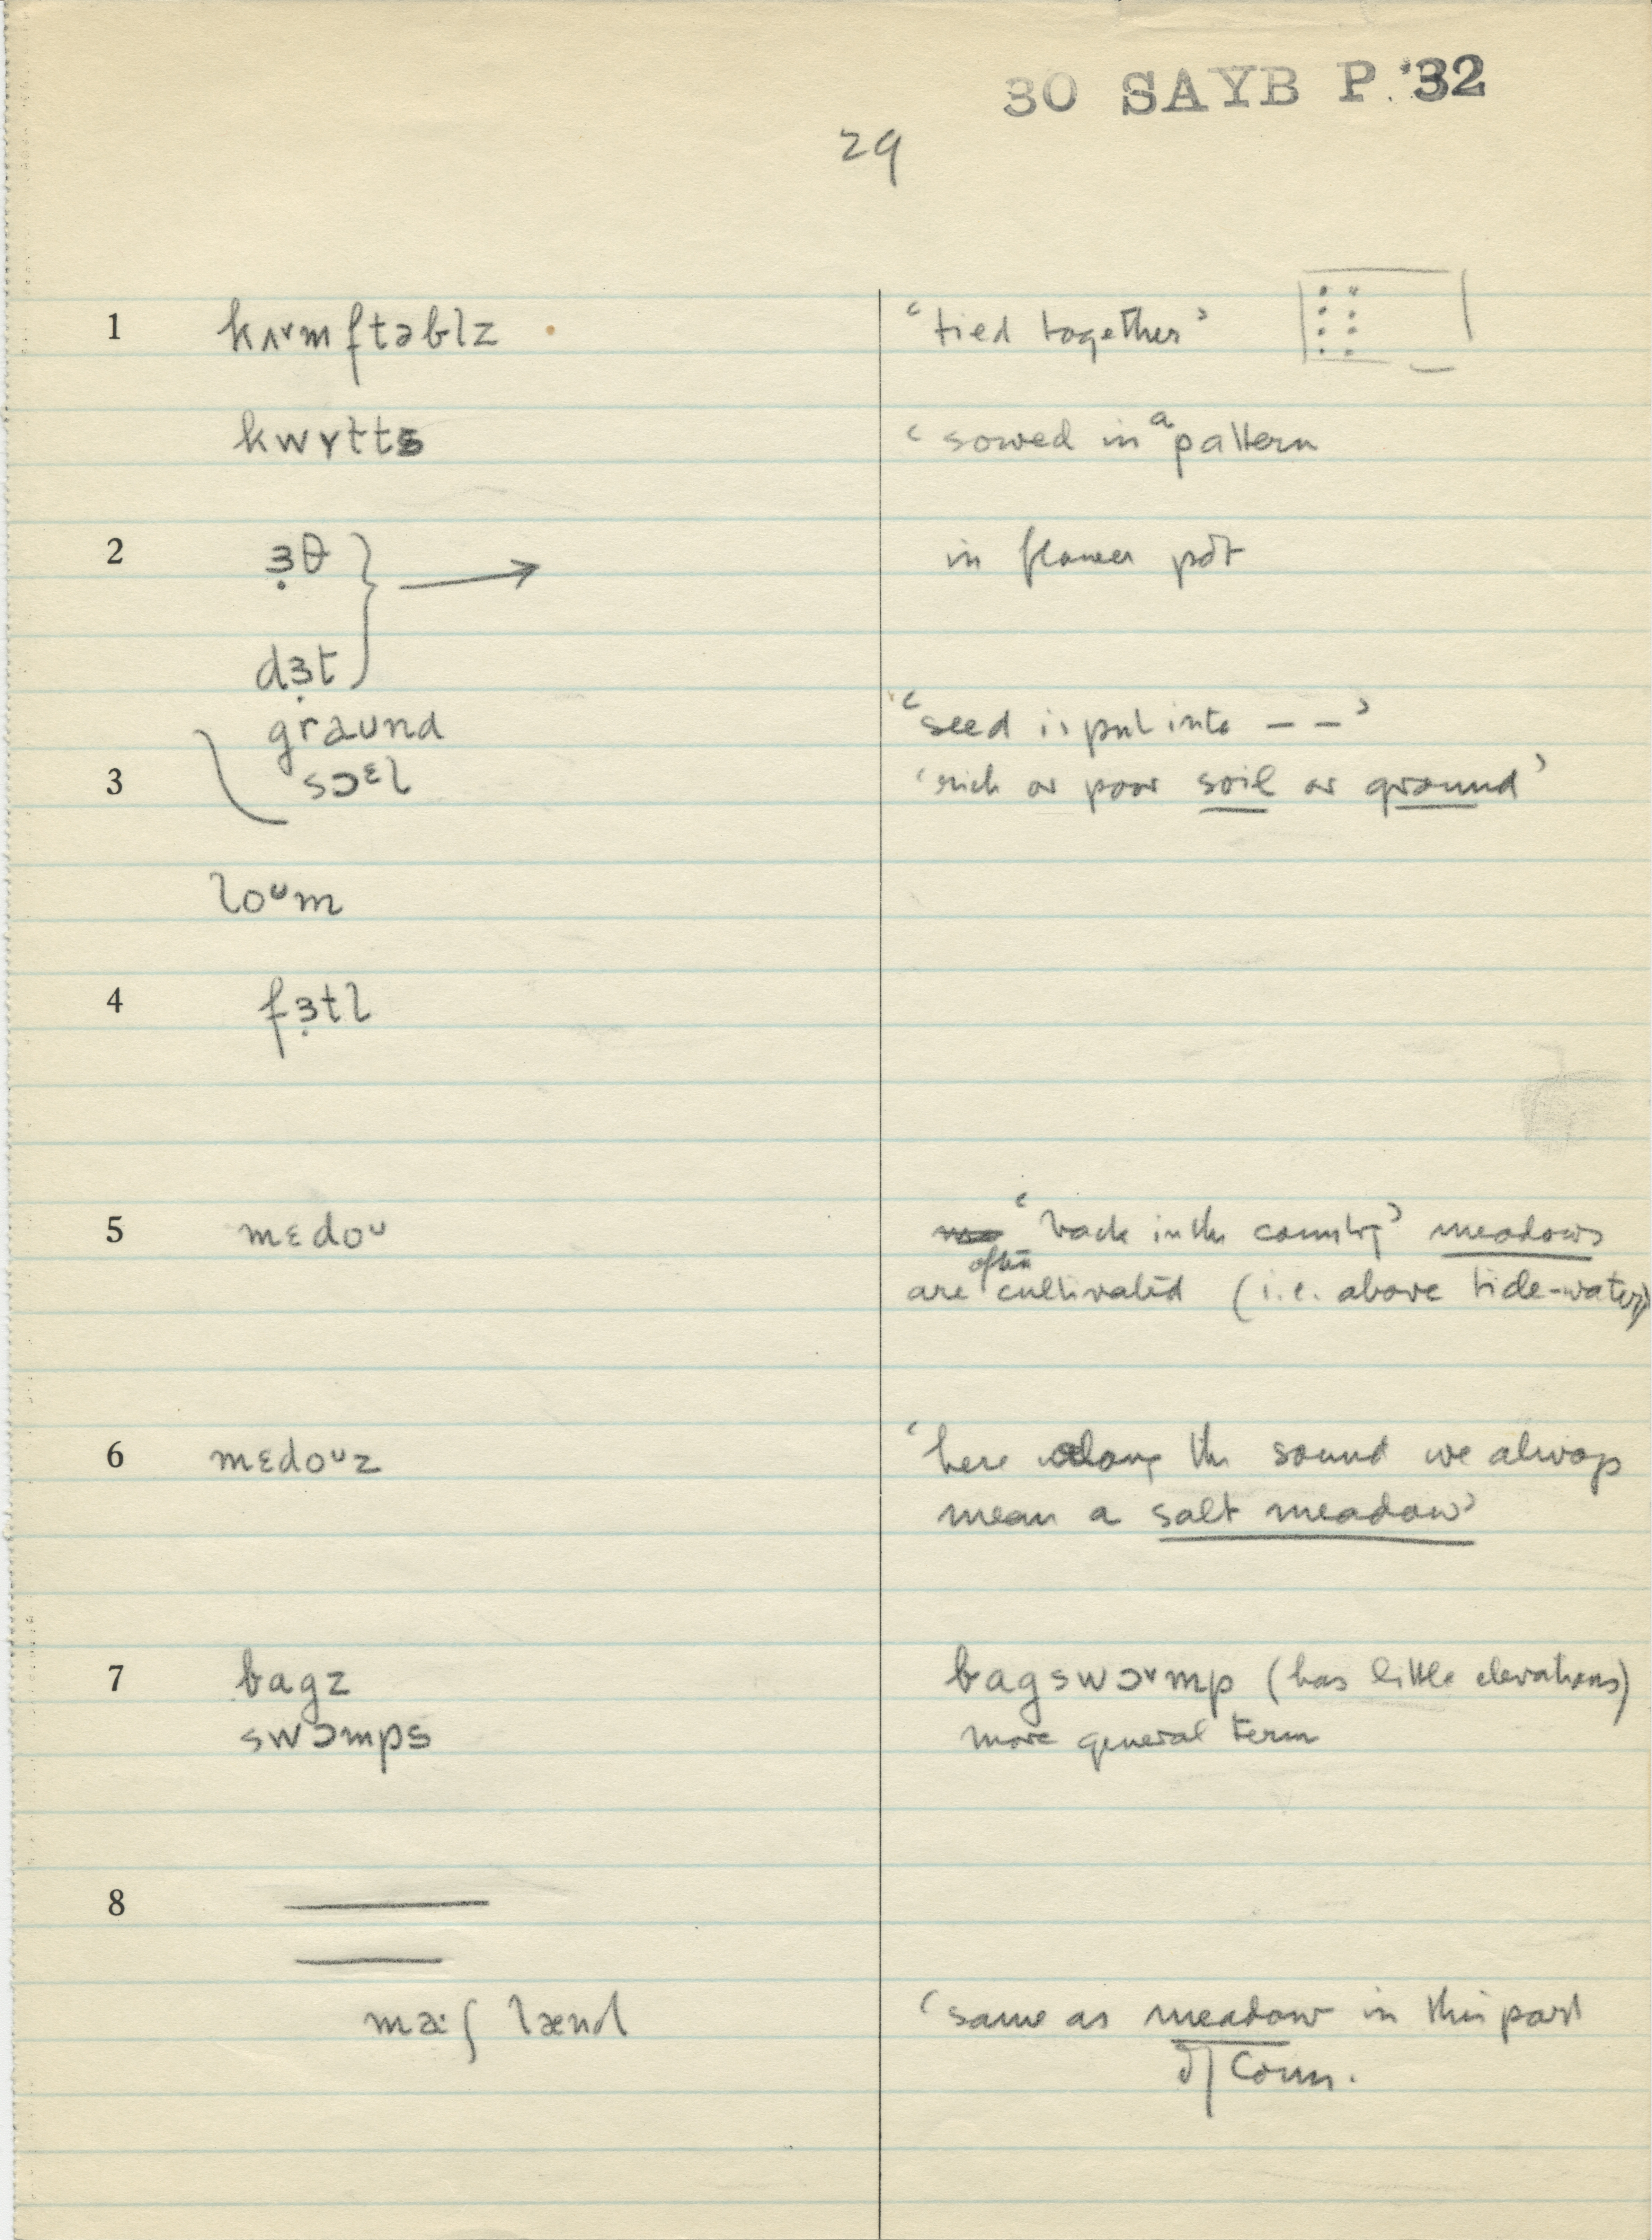 30 SAYB P. '32
29
1 kʌ˅mftəblz ‘tied together’
kwɤtts ‘sowed in a pattern
2 ɜ̣θ in flower pot
dɜ̣t
graund ‘seed is put into – –’
3 sɔᵋl ‘rich or poor soil or ground’
loᵘm
4 fɜ̣tl
5 mɛdoᵘ ‘back in the country’ meadows
are often cultivated (i.e. above tide-water)
6 mɛdoᵘz ‘here along the sound we always
mean a salt meadow’
7 bagz bagswɔ˅mp (has little elevations)
swɔmps more general term
8
ma:ʃ lænd ‘same as meadow in this part
of Conn.